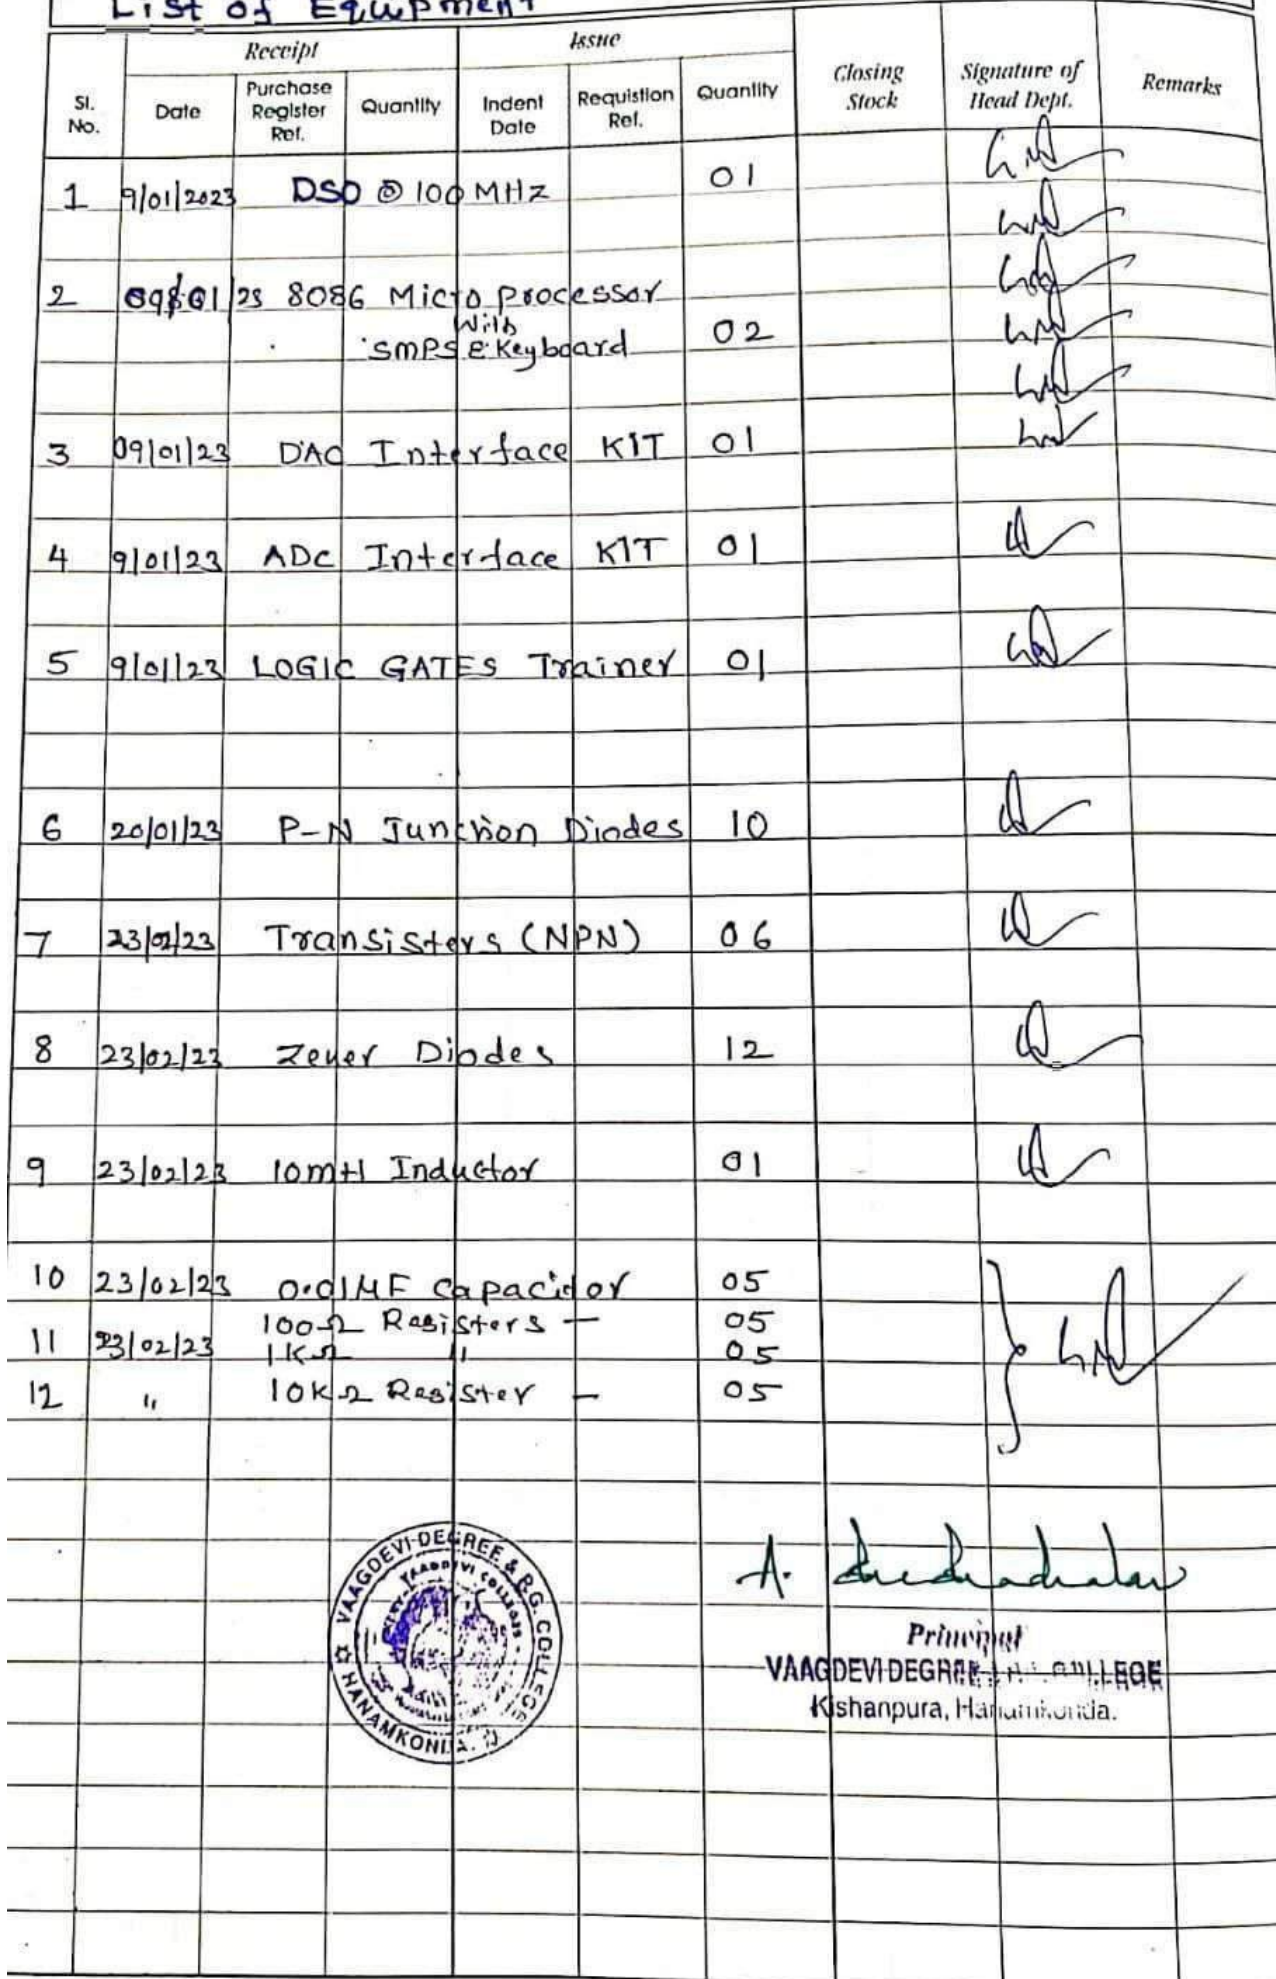 List of Equipment
Receipt
Issue
Sl. No.
Date
Purchase Register Ref.
Quantity
Indent Date
Requistion Ref.
Quantity
Closing Stock
Signature of Head Dept.
Remarks
1 9/01/2023 DSO @ 100 MHz 01
2 09/01/23 8086 Micro Processor
With
SMPS & Keyboard 02
3 09/01/23 DAC Interface KIT 01
4 9/01/23 ADC Interface KIT 01
5 9/01/23 LOGIC GATES Trainer 01
6 20/01/23 P-N Junction Diodes 10
7 23/02/23 Transisters (NPN) 06
8 23/02/23 Zener Diodes 12
9 23/02/23 10mH Inductor 01
10 23/02/23 0.01MF Capacitor 05
100Ω Registers — 05
11 23/02/23 1KΩ " 05
12 " 10KΩ Register — 05
VAAGDEVI DEGREE & P.G. COLLEGE
HANAMKONDA.
VAAGDEVI COLLEGES
A.
Principal
VAAGDEVI DEGREE & P.G. COLLEGE
Kishanpura, Hanamkonda.